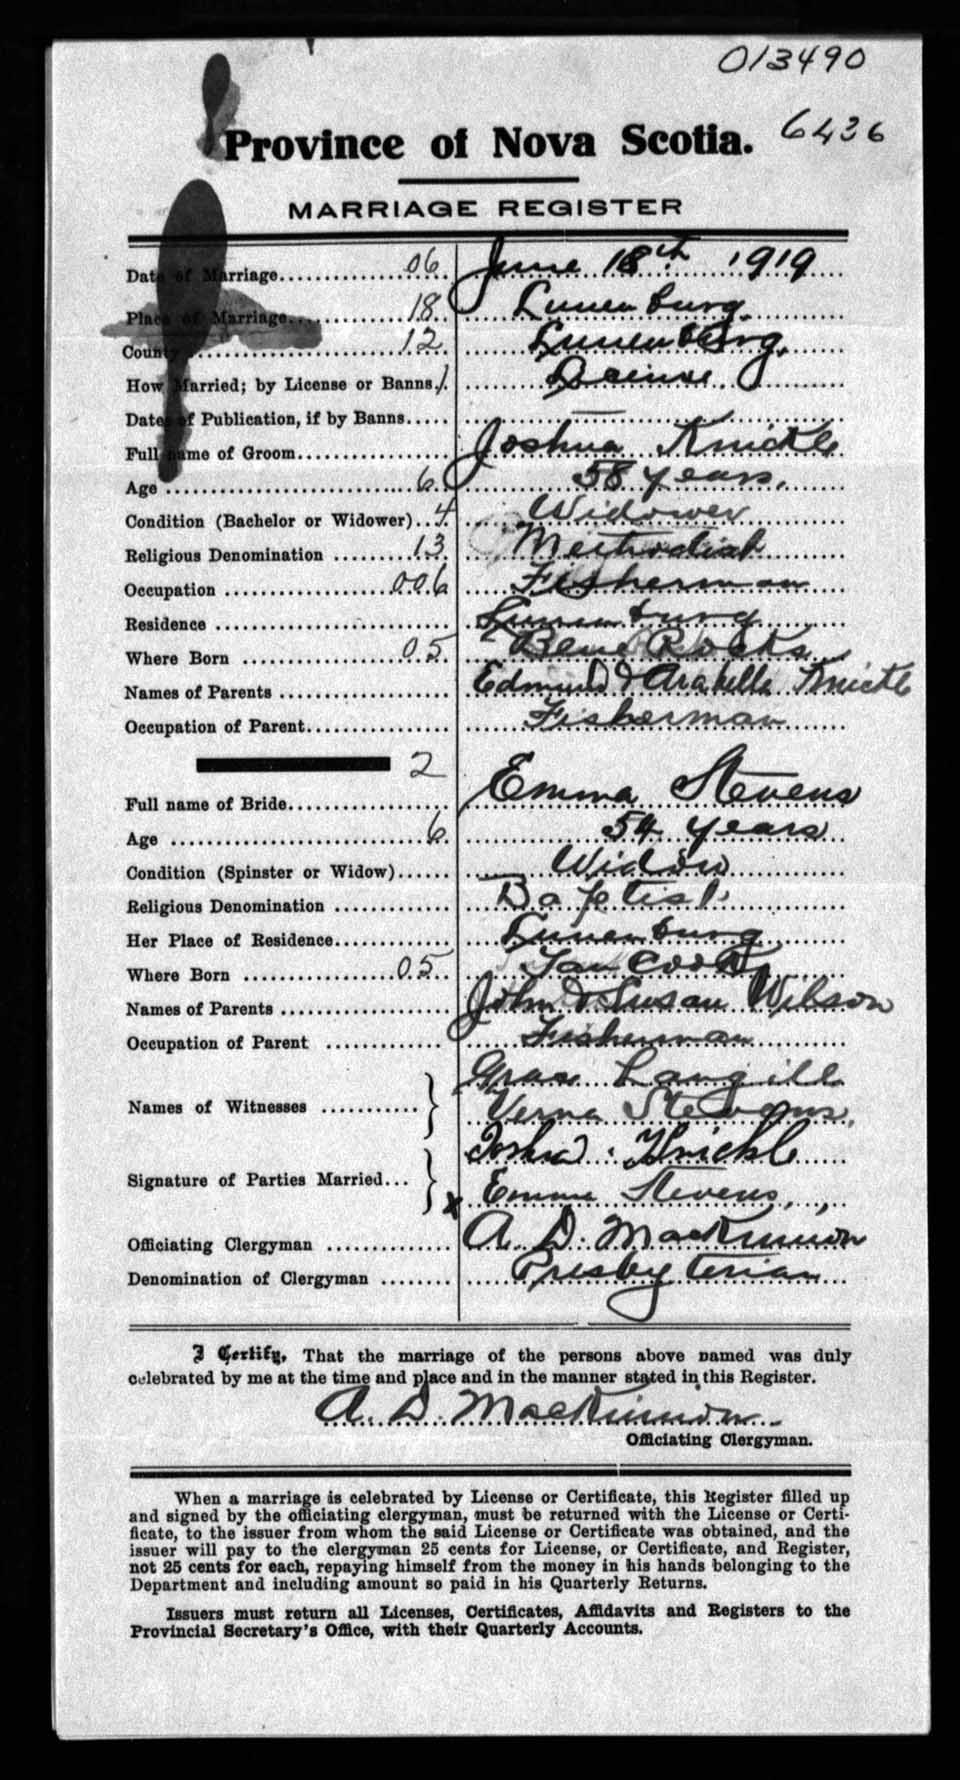 013490
6436
Province of Nova Scotia.
MARRIAGE REGISTER
Date of Marriage 06 June 18th 1919
Place of Marriage 18 Lunenburg
County 12 Lunenburg.
How Married; by License or Banns. 1 License
Date of Publication, if by Banns —
Full name of Groom Joshua Knickle
Age 6 58 years.
Condition (Bachelor or Widower) 4 Widower
Religious Denomination 13 Methodist
Occupation 006 Fisherman
Residence Lunenburg
Where Born 05 Blue Rocks
Names of Parents Edmund & Arabella Knickle
Occupation of Parent Fisherman
2
Full name of Bride Emma Stevens
Age 6 54 years
Condition (Spinster or Widow) Widow
Religious Denomination Baptist
Her Place of Residence Lunenburg
Where Born 05 Tancook
Names of Parents John & Susan Wilson
Occupation of Parent Fisherman
Names of Witnesses Grace Langille
Verna Stevens
Signature of Parties Married Joshua Knickle
x Emma Stevens
Officiating Clergyman A. D. MacKinnon
Denomination of Clergyman Presbyterian
I Certify, That the marriage of the persons above named was duly
celebrated by me at the time and place and in the manner stated in this Register.
A. D. MacKinnon
Officiating Clergyman.
When a marriage is celebrated by License or Certificate, this Register filled up
and signed by the officiating clergyman, must be returned with the License or Certi-
ficate, to the issuer from whom the said License or Certificate was obtained, and the
issuer will pay to the clergyman 25 cents for License, or Certificate, and Register,
not 25 cents for each, repaying himself from the money in his hands belonging to the
Department and including amount so paid in his Quarterly Returns.
Issuers must return all Licenses, Certificates, Affidavits and Registers to the
Provincial Secretary's Office, with their Quarterly Accounts.